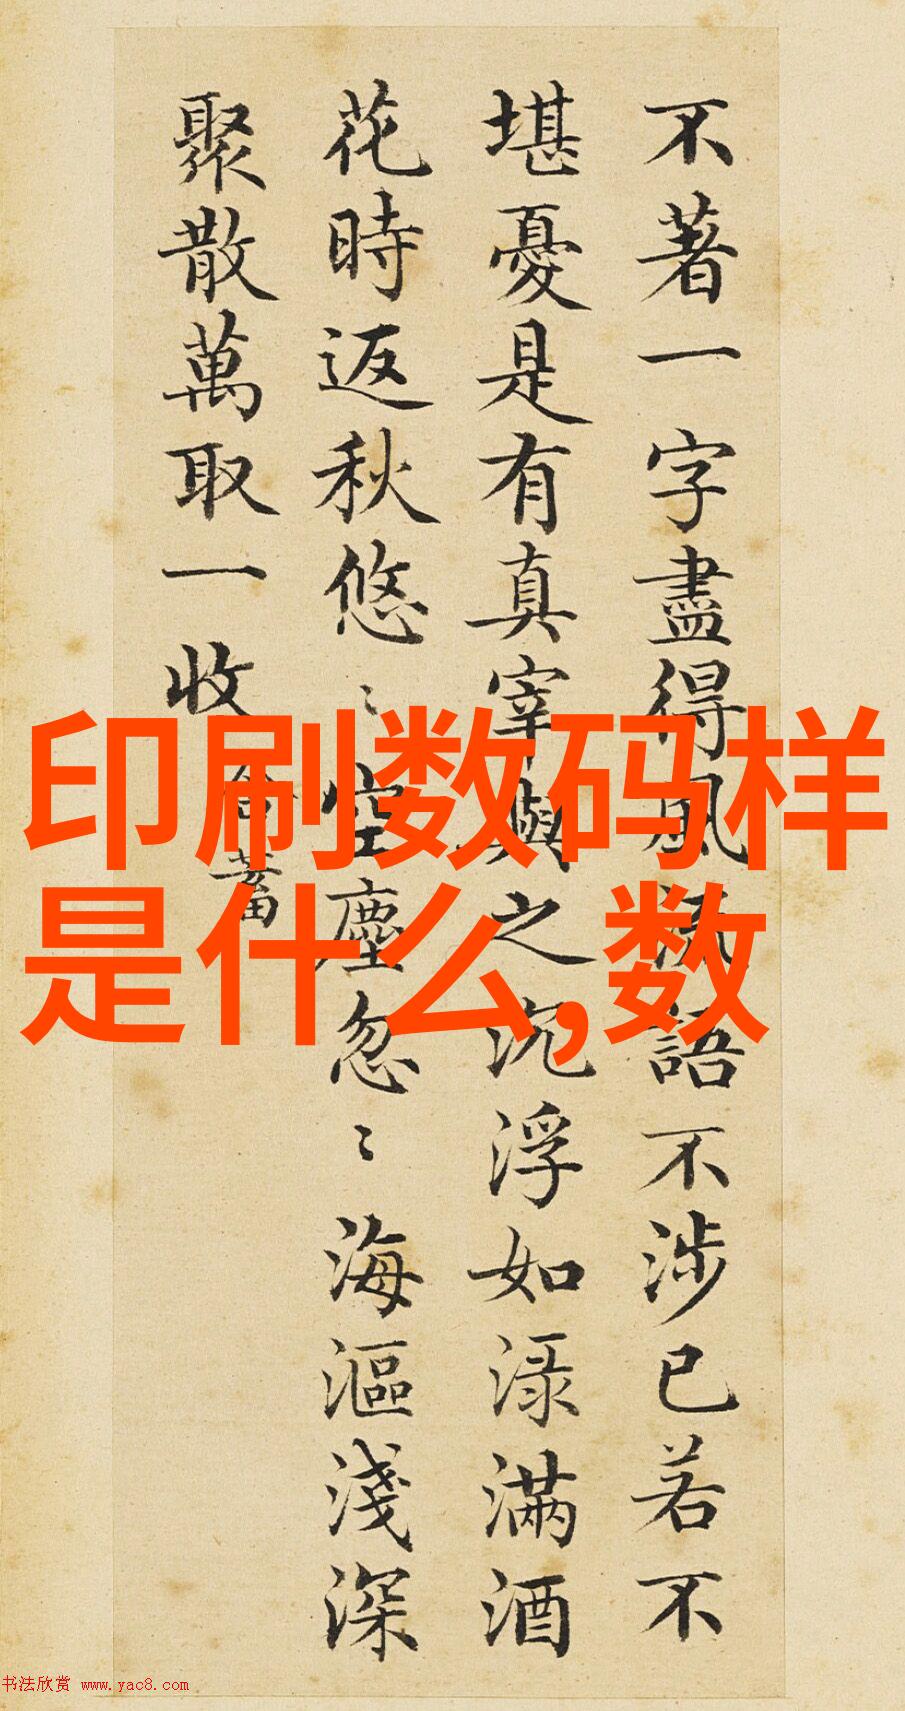 不著一字盡得風流語不涉已若不
堪憂是有真宰與之沉浮如渌滿酒
花時返秋悠〻空塵忽〻海漚淺深
聚散萬取一收
含蓄
印刷数码样
是什么,数
书法欣赏 www.yac8.com